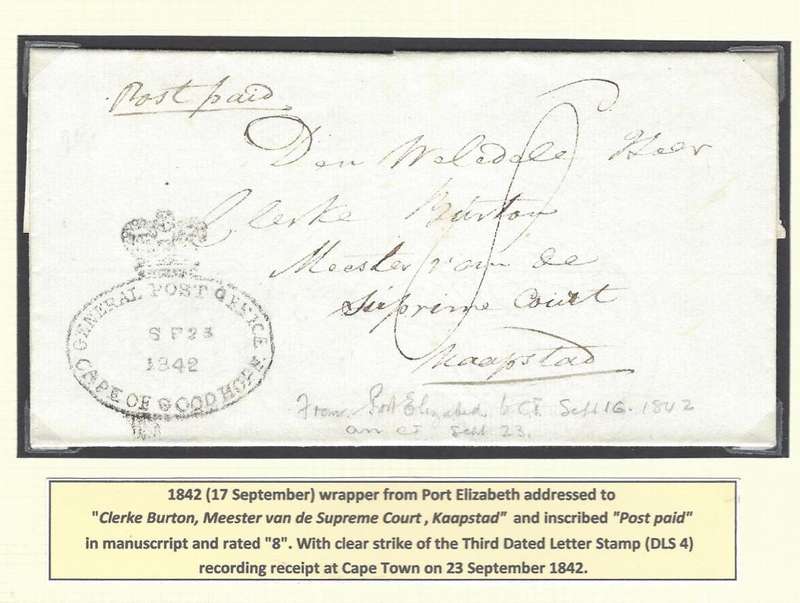 Post paid
Den Weledele Heer
Clerke Burton
Meester van de
Supreme Court
Kaapstad
8
GENERAL POST OFFICE
SE23
1842
CAPE OF GOOD HOPE
From Port Elizabeth to CT Sept 16. 1842
arr CT Sept 23.
1842 (17 September) wrapper from Port Elizabeth addressed to
"Clerke Burton, Meester van de Supreme Court , Kaapstad" and inscribed "Post paid"
in manuscrript and rated "8". With clear strike of the Third Dated Letter Stamp (DLS 4)
recording receipt at Cape Town on 23 September 1842.